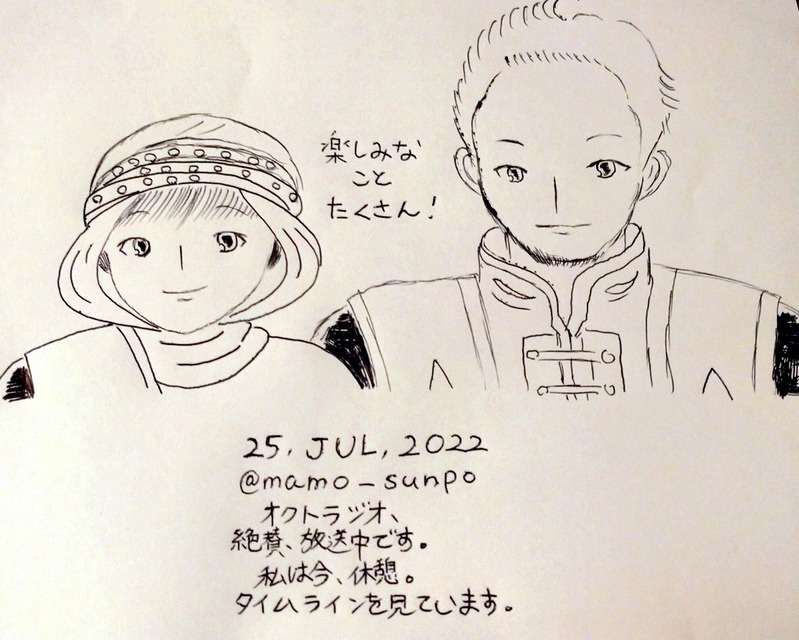 楽しみな
こと
たくさん!
25. JUL, 2022
@mamo_sunpo
オクトラジオ、
絶賛、放送中です。
私は今、休憩。
タイムラインを見ています。